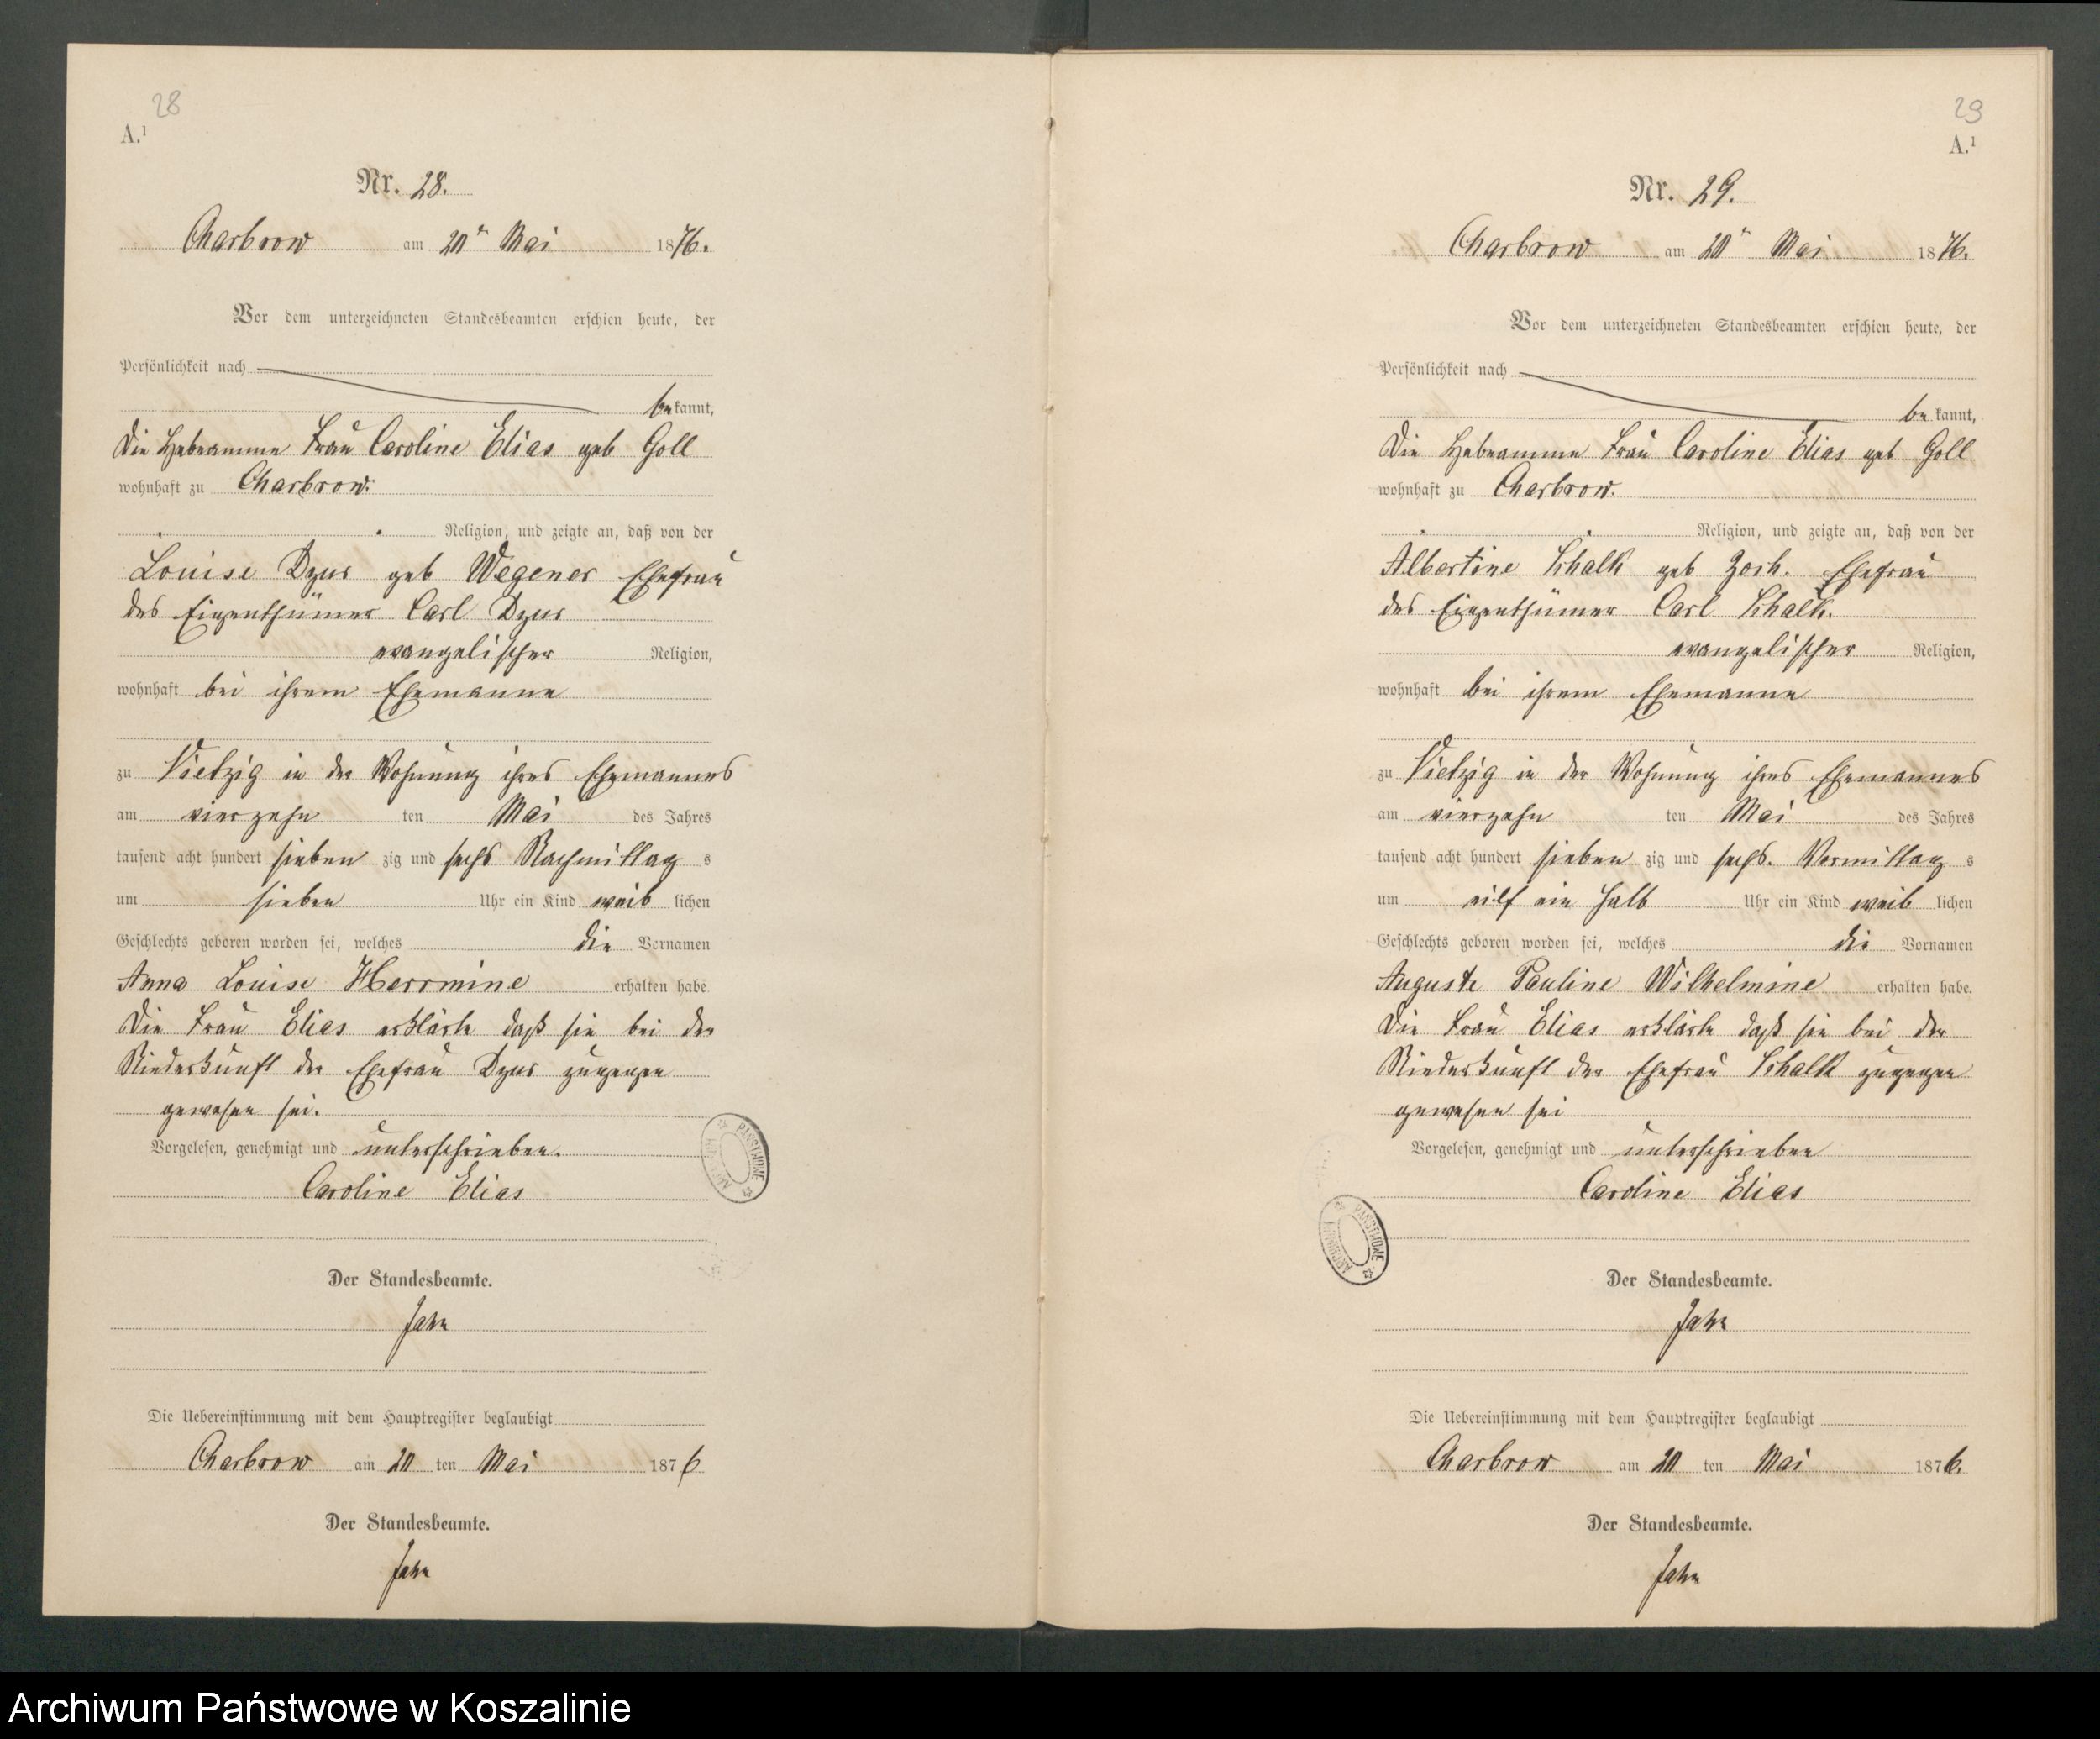 28
A.¹
Nr. 28.
Charbrow am 20ten Mai 1876.
Vor dem unterzeichneten Standesbeamten erschien heute, der
Persönlichkeit nach
bekannt,
Die Hebeamme Frau Caroline Elias geb Goll
wohnhaft zu Charbrow.
Religion, und zeigte an, daß von der
Louise Dzus geb Wegener Ehefrau
des Eigenthümer Carl Dzus
evangelischer Religion,
wohnhaft bei ihrem Ehemanne
zu Vietzig in der Wohnung ihres Ehemannes
am vierzehn ten Mai des Jahres
tausend acht hundert sieben zig und sechs Nachmittag s
um sieben Uhr ein Kind weib lichen
Geschlechts geboren worden sei, welches die Vornamen
Anna Louise Herrmine erhalten habe
Die Frau Elias erklärte daß sie bei der
Niederkunft der Ehefrau Dzus zugegen
gewesen sei.
Vorgelesen, genehmigt und unterschrieben.
Caroline Elias
Der Standesbeamte.
Jahn
Die Uebereinstimmung mit dem Hauptregister beglaubigt
Charbrow am 20 ten Mai 1876
Der Standesbeamte.
Jahn
ARCHIWUM PAŃSTWOWE
29
A.¹
Nr. 29.
Charbrow am 20ten Mai 1876.
Vor dem unterzeichneten Standesbeamten erschien heute, der
Persönlichkeit nach
be kannt,
Die Hebeamme Frau Caroline Elias geb Goll
wohnhaft zu Charbrow.
Religion, und zeigte an, daß von der
Albertine Schalk geb Ehefrau
des Eigenthümer Carl Schalk.
evangelischer Religion,
wohnhaft bei ihrem Ehemanne
zu Vietzig in der Wohnung ihres Ehemannes
am vierzehn ten Mai des Jahres
tausend acht hundert sieben zig und sechs. Vormittag s
um eilf ein halb Uhr ein Kind weib lichen
Geschlechts geboren worden sei, welches die Vornamen
Auguste Pauline Wilhelmine erhalten habe.
Die Frau Elias erklärte daß sie bei der
Niederkunft der Ehefrau Schalk zugegen
gewesen sei
Vorgelesen, genehmigt und unterschrieben
Caroline Elias
Der Standesbeamte.
Jahn
Die Uebereinstimmung mit dem Hauptregister beglaubigt
Charbrow am 20 ten Mai 1876.
Der Standesbeamte.
Jahn
ARCHIWUM PAŃSTWOWE
Archiwum Państwowe w Koszalinie